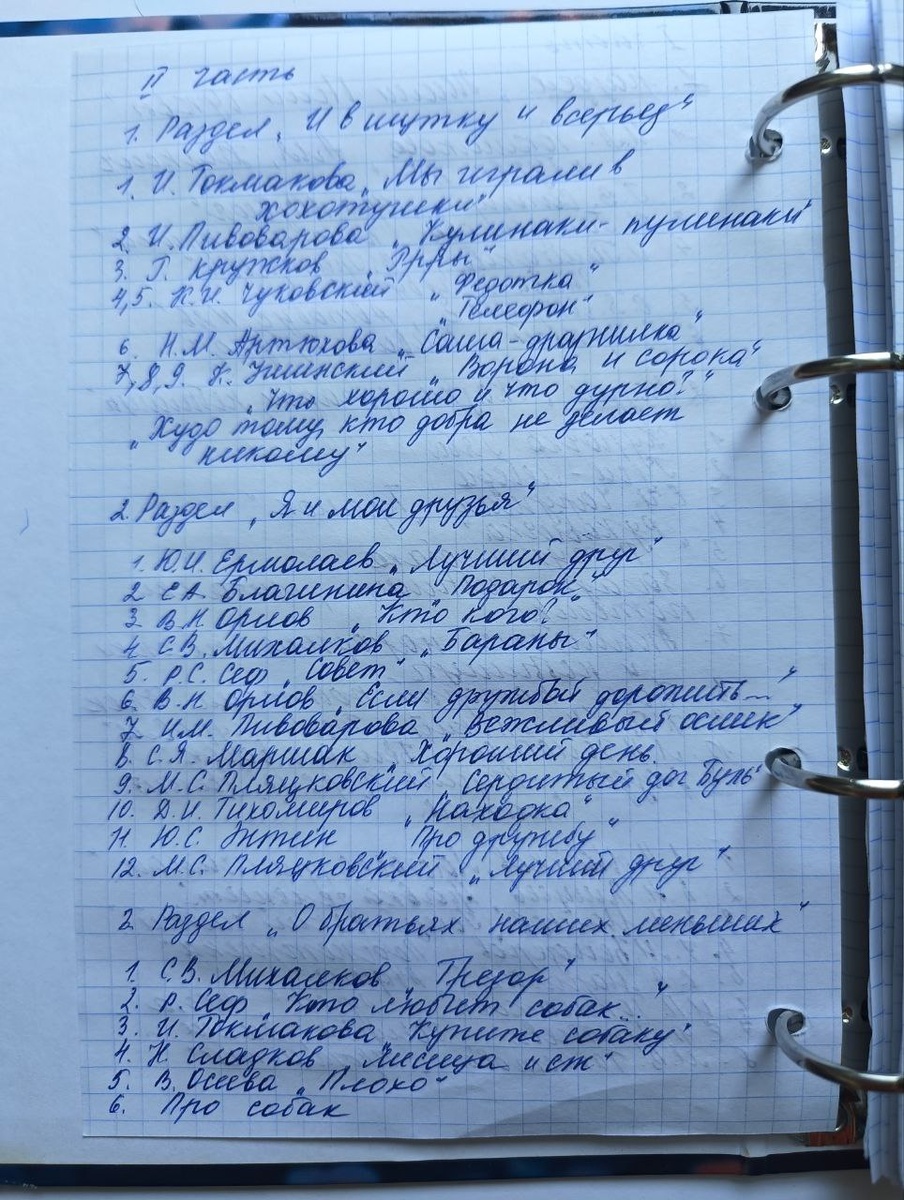 II часть
1. Раздел „И в шутку и всерьез"
1. И. Токмакова „Мы играли в
хохотушки"
2. И. Пивоварова „Кулинаки-пулинаки"
3. Г. Кружков „Ррры"
4,5. К.И. Чуковский „Федотка"
„Телефон"
6. Н.М. Артюхова „Саша-дразнилка"
7,8,9. К. Ушинский „Ворона и сорока"
„Что хорошо и что дурно?"
„Худо тому, кто добра не делает
никому"
2. Раздел „Я и мои друзья"
1. Ю.И. Ермолаев „Лучший друг"
2. Е.А. Благинина „Подарок"
3. В.Н Орлов „Кто кого?"
4. С.В. Михалков „Бараны"
5. Р.С. Сеф „Совет"
6. В.Н Орлов „Если дружбой дорожить..."
7. И.М. Пивоварова „Вежливый ослик"
8. С.Я. Маршак „Хороший день
9. М.С. Пляцковский „Сердитый дог Буль"
10. Д.И. Тихомиров „Находка"
11. Ю.С. Энтин „Про дружбу"
12. М.С. Пляцковский „Лучший друг"
2. Раздел „О братьях наших меньших"
1. С.В. Михалков „Трезор"
2. Р. Сеф „Кто любит собак..."
3. И. Токмакова „Купите собаку"
4. Н. Сладков „Лисица и ёж"
5. В. Осеева „Плохо"
6. Про собак